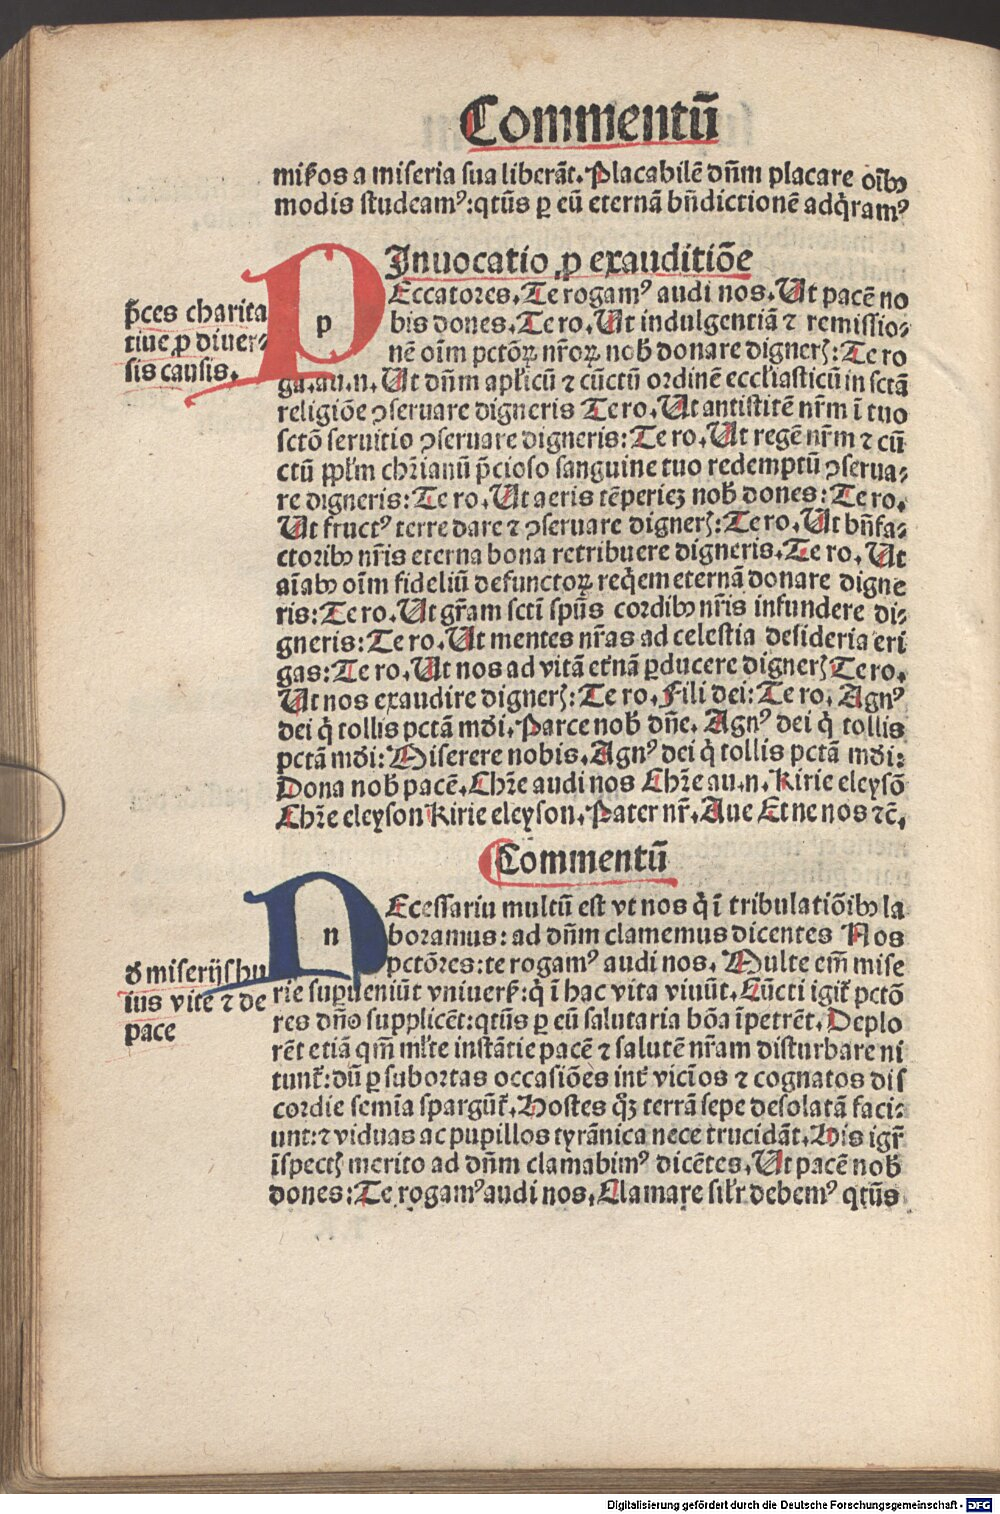 Commentū
miẜos a miseria sua liberāt. Placabilē dn̄m placare oīb⁹
modis studeamꝰ: qtūs ꝑ eū eternā bn̄dictionē adq̄ramꝰ
Inuocatio ꝓ exauditiōe
p̄ces charita
tiue ꝓ diuer⸗
sis causis.
PEccatores. Te rogamꝰ audi nos. Ut pacē no
bis dones. Te ro. Ut indulgentiā ⁊ remissio⸗
nē oīm pctōꝝ nr̄oꝝ nob̄ donare digner̄: Te ro
ga. au. n. Ut dn̄m apl̄icū ⁊ cūctū ordinē eccl̄iasticū in sctā
religiōe ꝯseruare digneris Te ro. Ut antistitē nr̄m ī tuo
sctō seruitio ꝯseruare digneris: Te ro. Ut regē nr̄m ⁊ cū
ctū ppl̄m chr̄ianū p̄cioso sanguine tuo redemptū ꝯserua⸗
re digneris: Te ro. Ut aeris tēperieꝫ nob̄ dones: Te ro.
Ut fructꝰ terre dare ⁊ ꝯseruare digner̄: Te ro. Ut bn̄fa⸗
ctorib⁹ nr̄is eterna bona retribuere digneris. Te ro. Ut
aīab⁹ oīm fideliū defunctoꝝ req̄em eternā donare digne
ris: Te ro. Ut gr̄am sctī spūs cordib⁹ nr̄is infundere di⸗
gneris: Te ro. Ut mentes nr̄as ad celestia desideria eri
gas: Te ro. Ut nos ad vitā et̄nā ꝑducere digner̄ Te ro.
Ut nos exaudire digner̄: Te ro. Fili dei: Te ro. Agnꝰ
dei q̄ tollis pctā mūdi. Parce nob̄ dn̄e. Agnꝰ dei q̄ tollis
pctā mūdi: Miserere nobis. Agnꝰ dei q̄ tollis pctā mūdi:
Dona nob̄ pacē. Chr̄e audi nos Chr̄e au. n. Kirie eleysō
Chr̄e eleyson Kirie eleyson. Pater nr̄. Aue Et ne nos ⁊c̄.
Commentū
đ miserijs hu
ius vite ⁊ de
pace
NEcessariū multū est vt nos q̄ ī tribulatiōib⁹ la
boramus: ad dn̄m clamemus dicentes Nos
pctōres: te rogamꝰ audi nos. Multe em̄ mise
rie supueniūt vniuerẜ: q̄ ī hac vita viuūt. Cūcti igit̄ pctō
res dn̄o supplicēt: qtūs ꝑ eū salutaria bōa īpetrēt. Deplo
rēt etiā qm̄ ml̄te instātie pacē ⁊ salutē nr̄am disturbare ni
tunt̄: dū ꝑ subortas occasiōes int̄ vicīos ⁊ cognatos dis
cordie semīa spargūt̄. Hostes qꝫ terrā sepe desolatā faci⸗
unt: ⁊ viduas ac pupillos tyrānica nece trucidāt. His igr̄
īspect̄ merito ad dn̄m clamabimꝰ dicētes. Ut pacē nob̄
dones: Te rogamꝰ audi nos. Clamare sil̄r debemꝰ qtūs
Digitalisierung gefördert durch die Deutsche Forschungsgemeinschaft - DFG